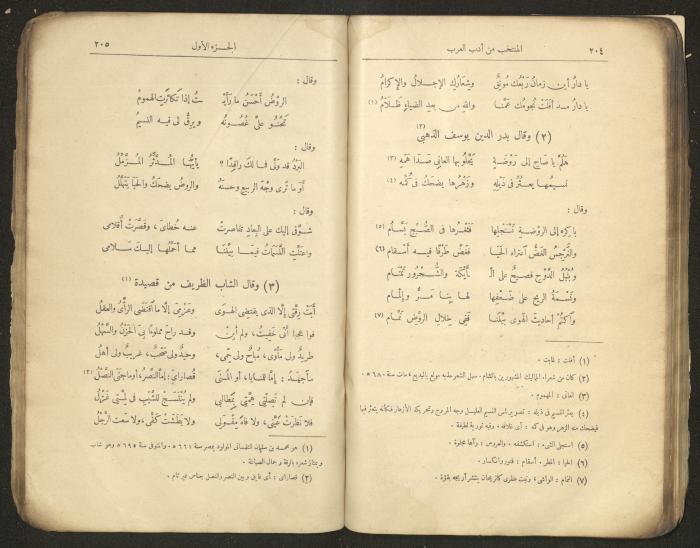 ٢٠٤ المنتخب من أدب العرب
يا دارُ أين زمانُ رَبْعِك مُونِقٌ وشِعارُكِ الإجلالُ والإكرامُ
يا دارُ مذ أفلَتْ نُجومُك عَمَّنا والله من بعدِ الضياءِ ظَلامُ (١)
(٢) وقال بدر الدين يوسف الذهبي (٢)
هَلُمَّ يا صاحِ إلى رَوْضَةٍ يَجْلُو بها العاني صَدَا هَمِّه (٣)
نسيمُها يعثُرُ في ذَيْلِهِ وزَهْرُها يضحَكُ في كُمِّه (٤)
وقال :
باكِرْ إلى الروْضَةِ تَسْتَجْلِها فَثَغْرُها في الصُّبْحِ بَسَّامُ (٥)
والنَّرْجِسُ الغَضُّ اعتراه الحَيَا فغَضَّ طَرْفًا فيه أَسْقامُ (٦)
وبُلْبُلُ الدَّوْحِ فصيحٌ على الْـ أَيْكَةِ والشُّحْرورُ تَمْتامُ
ونَسْمَةُ الريحِ على ضَعْفِها لها بِنا مَرٌّ وإلمامُ
واكْتُمْ أحاديثَ الهوى بَيْنَنا ففى خِلالِ الروْضِ نَمَّامُ (٧)
(١) أفلت : غابت .
(٢) كان من شعراء المماليك المشهورين بالشام . سهل الشعر عذبه مولع بالبديع، مات سنة ٦٨٠ هـ .
(٣) العانى : المهموم .
(٤) يعثر النسيم فى ذيله : تصوير لمس النسيم العليل وجه المروج وتحريكه الأزهار فكأنه يتعثر فيها
فيضحك منه الزهر وهو فى كمه : أى غلافه . وفيه تورية لطيفة .
(٥) استجلى الشىء : استكشفه . والعروس : رآها مجلوة .
(٦) الحيا : المطر . أسقام : فتور وانكسار .
(٧) النمام : الواشى ، ونبت عطرى كالريحان ينتشر أريجه بقوة .
الجزء الأول ٢٠٥
وقال :
الروْضُ أَحْسَنُ ما رأيْـ ـتُ إذا تكاثرتِ الهمومُ
تَحْنُو علىَّ غُصُونُه ويرِقُّ لى فيه النسيمُ
وقال :
البَرْدُ قد ولَّى فما لَك راقِدًا ؟ يأيُّها المُدَّثِّرُ المُزَّمِّلُ
أوَ ما تَرى وجْهَ الربيعِ وحُسنَه والروضُ يضحَكُ والحيا يَتَهَلَّلُ
وقال :
شَوْقى إليك على البِعادِ تقاصرتْ عنه خُطاىَ ، وقَصَّرَتْ أقلامى
واعتَلَّتِ النَّسَماتُ فيما بيْنَنا مما أُحَمِّلُها إليك سلامى
(٣) وقال الشاب الظريف من قصيدة (١)
أبَتْ رِقَّتِى إلّا الذى يقتضِى الهوى وعَزْمِىَ إلّا ما اقتَضى الرأىُ والعقلُ
فوا عجبا أنّى خَفِيتُ ، ولم أبِنْ وقد راح مملوءًا بِىَ الحَزْنُ والسَّهْلُ
طريدٌ ولى مأوًى ، مباحٌ ولى حِمًى ، وحيدٌ ولى صَحْبٌ ، غريبٌ ولى أهلُ
سأجهَدُ : إمَّا للمنايا ، أو المُنَى قصاراىَ : إمّا النَّصرُ ، أو ما جَنَى النَّصْلُ (٢)
فإن لم تَصِلْنى هِمَّتِى بِمَطالبِى ولم يَتَفَسَّحْ للشَّبِيبِ فى لِمَّتِى عَزْلُ
فلا نَظَرتْ عَيْنِى ، ولا فاه مِقْوَلى ولا بطشتْ كَفِّى ، ولا سَعَتِ الرِّجْلُ
(١) هو محمد بن سليمان التلمسانى المولود بمصر سنة ٦٦١ هـ . والمتوفى سنة ٦٩٥ هـ وهو شاب
ويمتاز شعره بالرقة وجمال الصياغة .
(٢) قصاراى : أى غايتى وبين النصر والنصل جناس غير تام .